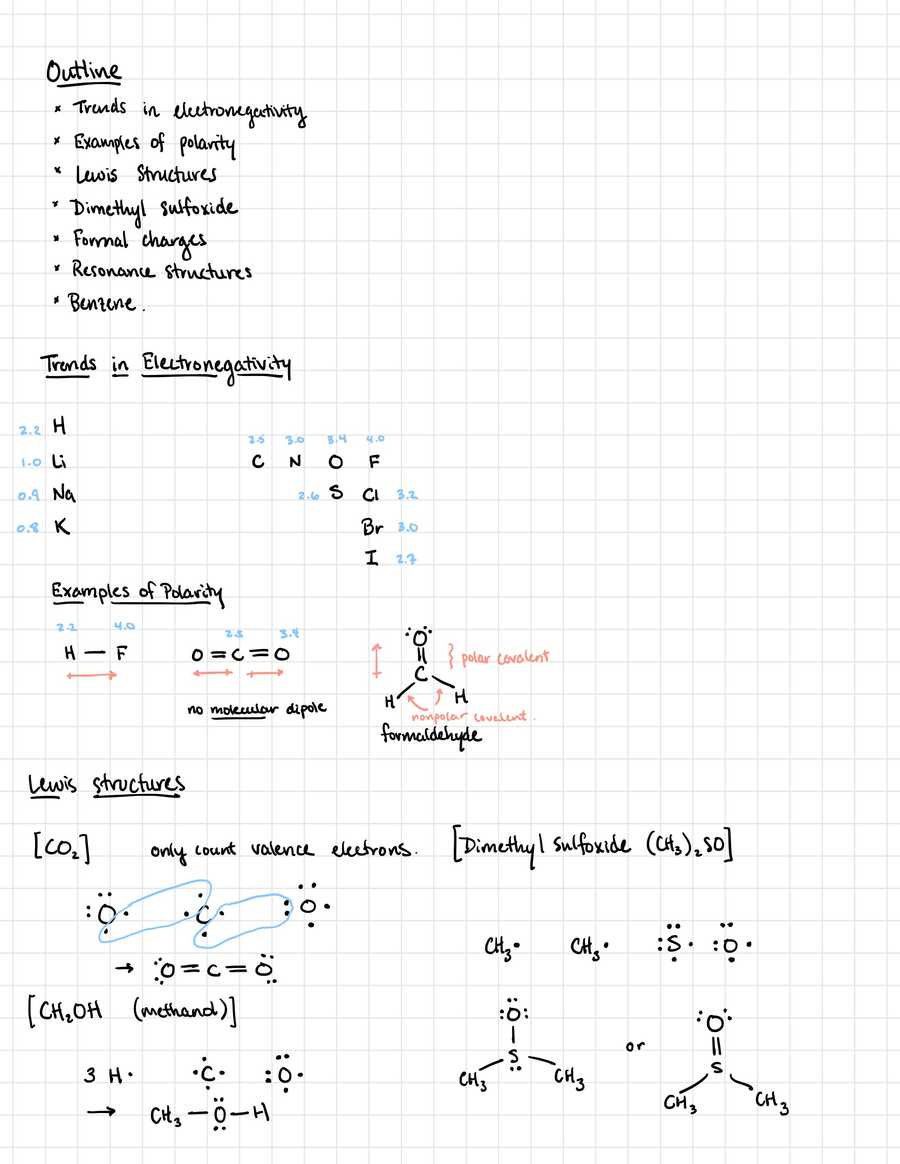 Outline
* Trends in electronegativity
* Examples of polarity
* Lewis Structures
* Dimethyl sulfoxide
* Formal charges
* Resonance structures
* Benzene.
Trends in Electronegativity
2.2 H
2.5 3.0 3.4 4.0
1.0 Li C N O F
0.9 Na 2.6 S Cl 3.2
0.8 K Br 3.0
I 2.7
Examples of Polarity
2.2 4.0
H — F
2.5 3.4
O = C = O
no molecular dipole
:O:
||
C
H H
} polar covalent
nonpolar covalent.
formaldehyde
Lewis structures
[CO₂] only count valence electrons.
:Ö· ·C· :O·
→ :O=C=O:
[CH₂OH (methanol)]
3 H· ·C· :Ö·
→ CH₃—O—H
[Dimethyl sulfoxide (CH₃)₂SO]
CH₃· CH₃· :S· :O·
:Ö:
|
S
CH₃ CH₃
or
:O:
||
S
CH₃ CH₃